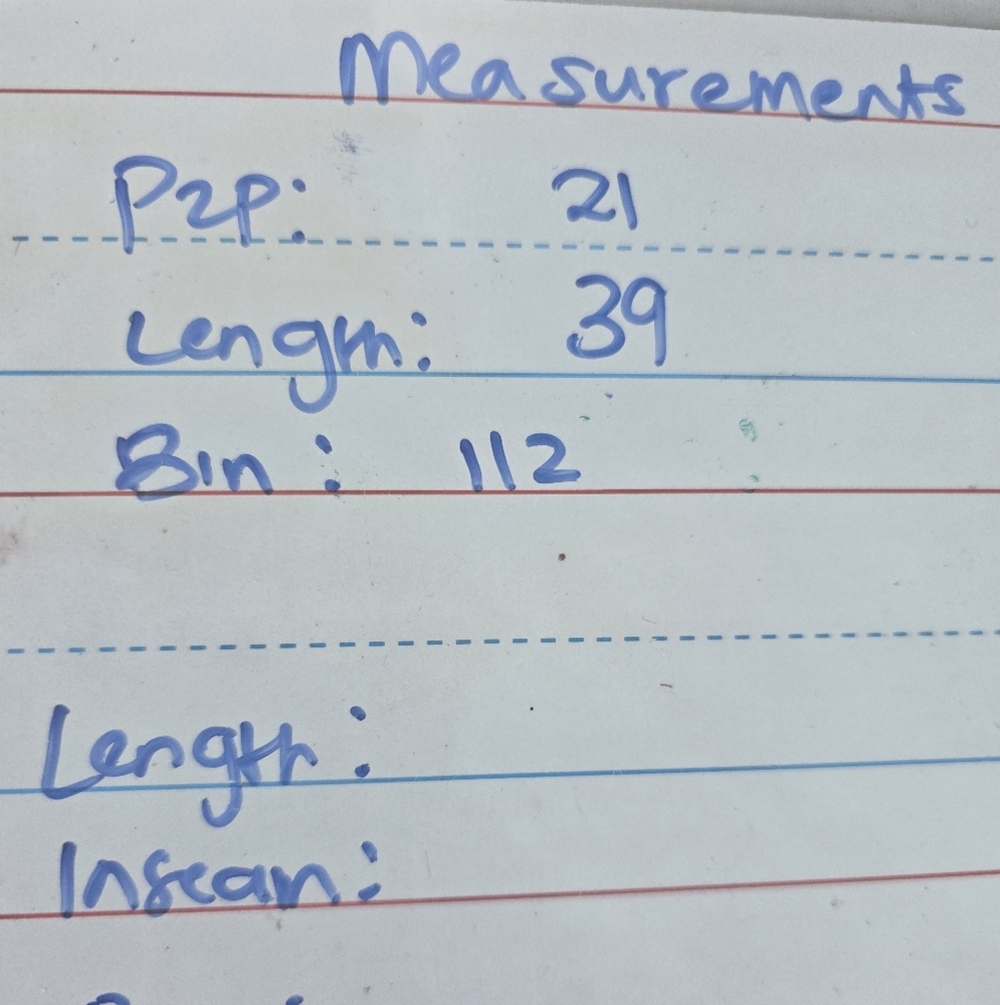 Measurements
P2P: 21
Length: 39
Bin: 112
Length:
Inseam: